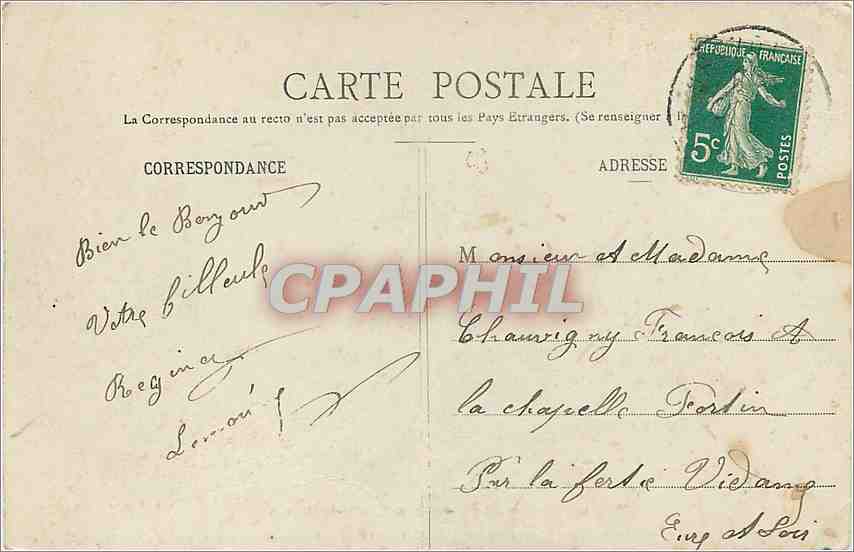 CARTE POSTALE
La Correspondance au recto n'est pas acceptée par tous les Pays Etrangers. (Se renseigner à l
RÉPUBLIQUE FRANÇAISE
5c
POSTES
CORRESPONDANCE
Bien le Bonjour
Votre filleule
Regina
ADRESSE
Monsieur et Madame
Chauvigny François A
la chapelle Fortin
Par la ferté Vidame
Eure et Loir
CPAPHIL